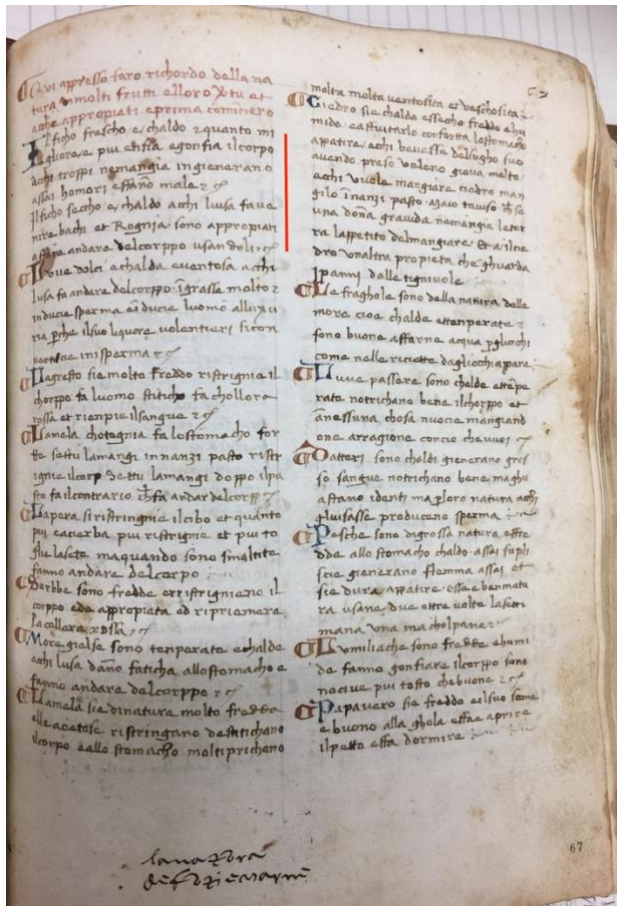 Qui appresso faro richordo della na
tura di molti frutti e lloro virtu et
acche appropiati e prima cominciero
Il ficho frescho e chaldo et quanto mi
gliore e piu enfia e gonfia il corpo
acchi troppi ne mangia ingienerano
assai homori e ffanno male
Il ficho seccho e chaldo acchi lusa fa ve
nire bachi et Rognja sono appropiati
affare andare del corppo usandoli
L uve dolci e chalda e ventosa acchi
lusa fa andare del corppo ingrassa molto et
inducie sperma e inducie luomo alluxu
ria perche il suo liquore volentieri si con
verte in isperma
L agresto sie molto freddo ristrignie il
chorppo fa luomo stiticho fa chollora
rossa et rienpie il sangue
La mela chotognia fa lo stomacho for
te se ttu la mangi innanzi pasto ristr
ignie il corp Se ttu la mangi doppo il pa
sto fa il contrario che fa andar del corpp
La pera si ristringnie il cibo et quanto
piu e acierba piu ristrignie et piu to
glie la sete ma quando sono smaltite
fanno andare del corpo
Sorbbe sono fredde e ristrignieno il
corppo ed e appropiata ad ripriemere
la collera rossa
More gielse sono tenperate e chalde
achi lusa danno faticha allo stomacho e
fanno andare del corppo
La mela sie di natura molto fredda
elle acetose ristringano e stitichano
il corpo e allo stomacho molti prichano
67
molta molta ventosita et veschosita
Ciedro sie chaldo e ssecho freddo e hu
mido e a ffiutarlo conforta lo stomacho
appatire e chi bevesse del sugho suo
avendo preso veleno giova molto
e chi vuole mangiare ciedro man
gilo innanzi pasto
una donna gravida ne mangia le tor
ra lappetito del mangiare Et a il cie
dro unaltra propieta che ghuarda
i panni dalle tignivole
Le fraghole sono della natura delle
more cioe chalde e ttenperate et
sono buone affarne acqua per gliocchi
come nelle riciette dagliocchi apare
L uve passere sono chalde e ttenpe
rate notrichano bene il chorppo et
a nessuna chosa nuocie mangiand
one arragione concio che vuoi
Datteri sono chaldi gienerano gros
so sangue notrichano bene ma ghu
astano i denti ma per loro natura achi
gli usasse produceno sperma
Pesche sono di grossa natura e ffre
dde allo stomacho chaldo assai supli
scie gienerano flemma assai et
sie dura appatire essa e ben matu
ra usane due o ttre volte la setti
mana una ma chol pane
L umiliache sono fredde e humi
de fanno gonfiare il corppo sono
nocive piu tosto che buone
Papavero sie freddo e il suo seme
e buono alla ghola e ffae aprire
il petto e ffa dormire
67